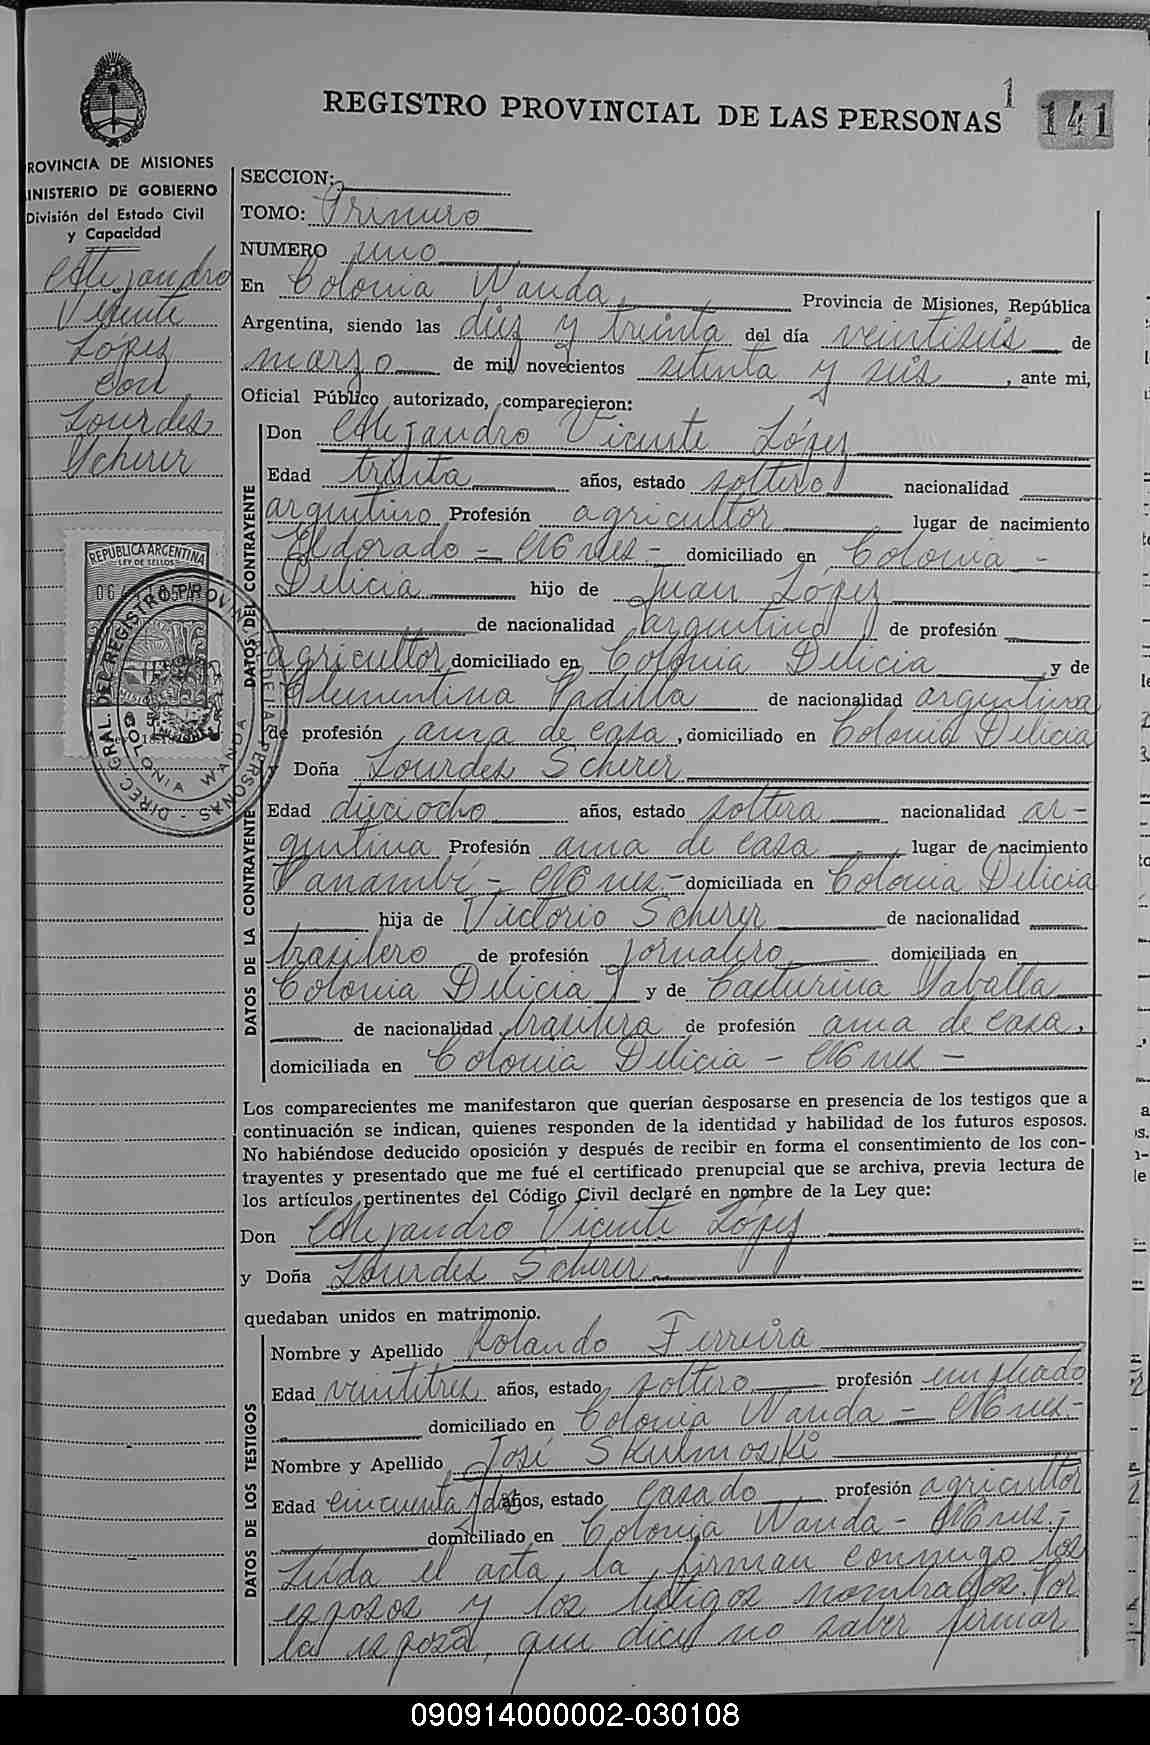 REGISTRO PROVINCIAL DE LAS PERSONAS
1
141
ROVINCIA DE MISIONES
INISTERIO DE GOBIERNO
División del Estado Civil
y Capacidad
Alejandro
Vicente
López
con
Lourdes
Scherer
REPUBLICA ARGENTINA
LEY DE SELLOS
DIREC. GRAL. DEL REGISTRO PROVIN. DE LAS PERSONAS -
COLONIA WANDA
SECCION:
TOMO: Primero
NUMERO uno
En Colonia Wanda, Provincia de Misiones, República
Argentina, siendo las diez y treinta del día veintiséis de
marzo de mil novecientos setenta y seis, ante mi,
Oficial Público autorizado, comparecieron:
DATOS DEL CONTRAYENTE
Don Alejandro Vicente López
Edad treita años, estado soltero nacionalidad
argentino Profesión agricultor lugar de nacimiento
Eldorado - Mnes - domiciliado en Colonia -
Delicia hijo de Juan López
de nacionalidad argentino de profesión
agricultor domiciliado en Colonia Delicia y de
Clementina Padilla de nacionalidad argentina
de profesión ama de casa, domiciliado en Colonia Delicia
DATOS DE LA CONTRAYENTE
y Doña Lourdes Scherer
Edad dieciocho años, estado soltera nacionalidad ar-
gentina Profesión ama de casa lugar de nacimiento
Panambí - Mnes - domiciliada en Colonia Delicia
hija de Victorio Scherer de nacionalidad
brasilero de profesión jornalero domiciliada en
Colonia Delicia y de Casturina Saballa
de nacionalidad brasilera de profesión ama de casa,
domiciliada en Colonia Delicia - Mnes -
Los comparecientes me manifestaron que querían desposarse en presencia de los testigos que a
continuación se indican, quienes responden de la identidad y habilidad de los futuros esposos.
No habiéndose deducido oposición y después de recibir en forma el consentimiento de los con-
trayentes y presentado que me fué el certificado prenupcial que se archiva, previa lectura de
los artículos pertinentes del Código Civil declaré en nombre de la Ley que:
Don Alejandro Vicente López
y Doña Lourdes Scherer
quedaban unidos en matrimonio.
DATOS DE LOS TESTIGOS
Nombre y Apellido Rolando Ferreira
Edad veintitres años, estado soltero profesión empleado
domiciliado en Colonia Wanda - Mnes -
Nombre y Apellido José Skulmoski
Edad cincuenta y dos años, estado casado profesión agricultor
domiciliado en Colonia Wanda - Mnes. -
Leída el acta, la firman conmigo los
esposos y los testigos nombrados. Por
la esposa, que dice no saber firmar
090914000002-030108